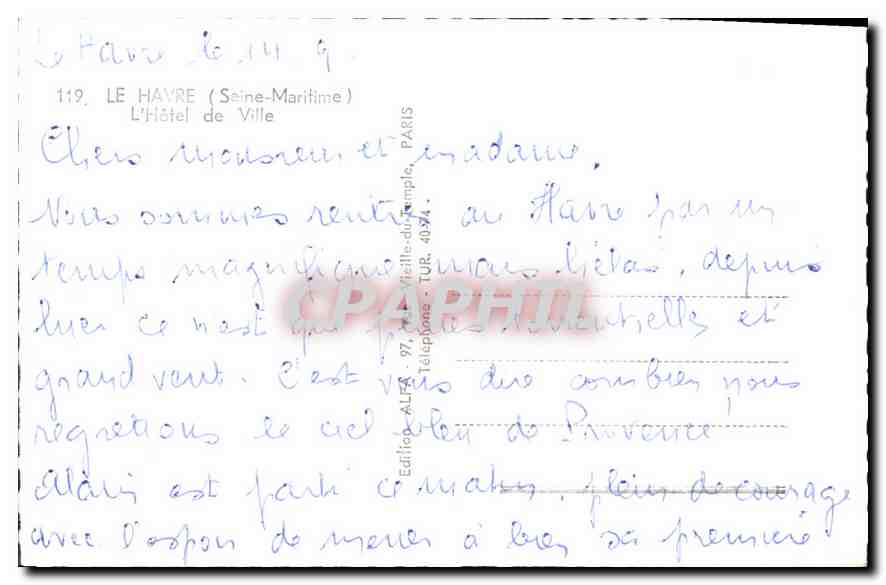 Le Havre le 14 9.
119. LE HAVRE (Seine-Maritime)
L'Hôtel de Ville
Chers monsieur et madame.
Nous sommes rentrés au Havre par un
temps magnifique mais hélas, depuis
hier ce n'est que pluies torrentielles et
grand vent. C'est vous dire combien nous
regrettons le ciel bleu de Provence!
Alain est parti ce matin, plein de courage
avec l'espoir de mener à bien sa première
Edition ALFA 97, Vieille-du-Temple, PARIS
Téléphone - TUR. 40-74.
CPAPHIL